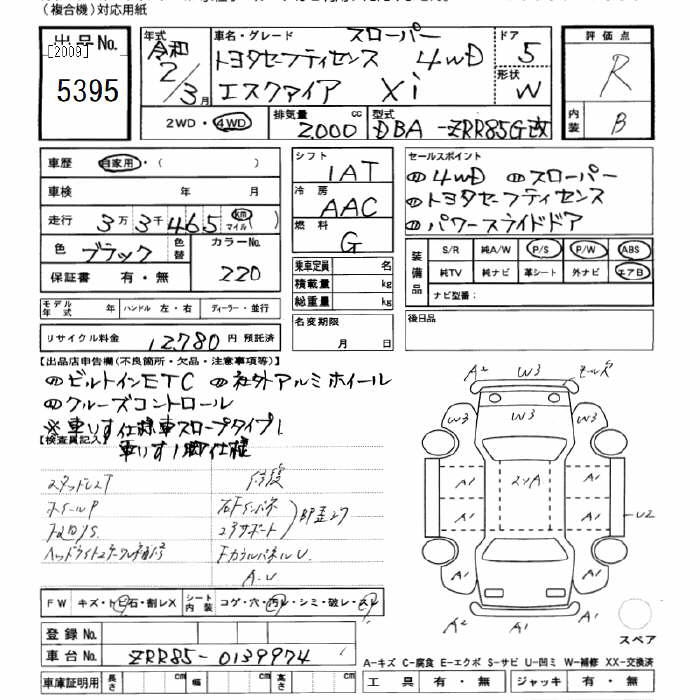 （複合機）対応用紙
出品No.
[2009]
5395
年式 令和 2/3月
車名・グレード スローパー
トヨタセーフティセンス 4WD
エスクァイア Xi
ドア 5
形状 W
評価点 R
内装 B
2WD・4WD
排気量 2000 cc
型式 DBA-ZRR85G改
車歴 自家用・( )
車検 年 月
走行 3万3千465 km マイル( )
色 ブラック 色替
カラーNo. 220
保証書 有・無
モデル年式 年 ハンドル 左・右 ディーラー・並行
リサイクル料金 12780円 預託済
シフト IAT
冷房 AAC
燃料 G
乗車定員 名
積載量 kg
総重量 kg
名変期限 月 日
セールスポイント
4WD スローパー
トヨタセーフティセンス
パワースライドドア
装備品 S/R 純A/W P/S P/W ABS
純TV 純ナビ 革シート 外ナビ エアB
ナビ型番：
後日品
【出品店申告欄(不良箇所・欠品・注意事項等)】
ビルトインETC 社外アルミホイール
クルーズコントロール
※車いす仕様車スロープタイプ1
車いす1脚仕様
【検査員記入】
スタッドレスT
ホイールP
修復
右Fインパネ
コアサポート
A.U
FW キズ・トビ石・割レX シート内装 コゲ・穴・汚レ・シミ・破レ・スレ
登録No.
車台No. ZRR85-0139974
車庫証明用 長さ cm 幅 cm 高さ cm
A2 W3
W3 W3 W3
A1 2ケA A1
A1 A1 U2
A1 A1
A2 A1 A1
スペア
A-キズ C-腐食 E-エクボ S-サビ U-凹ミ W-補修 XX-交換済
工具 有・無 ジャッキ 有・無